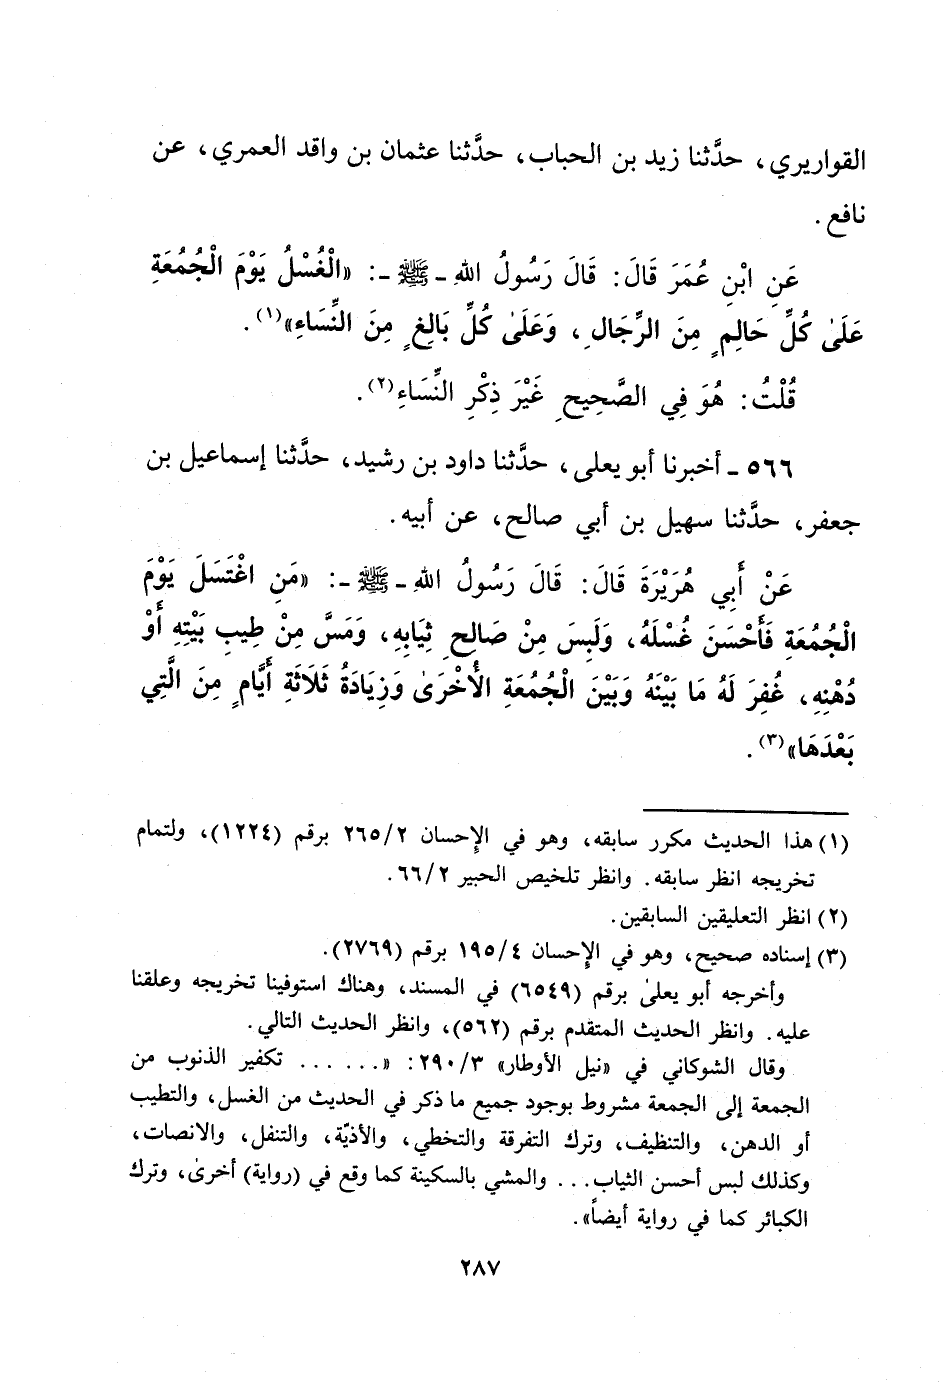 القواريري، حدَّثنا زيد بن الحباب، حدَّثنا عثمان بن واقد العمري، عن
نافع.
عَنِ ابْنِ عُمَرَ قَالَ: قَالَ رَسُولُ اللهِ - ﷺ -: «الْغُسْلُ يَوْمَ الْجُمُعَةِ
عَلَىٰ كُلِّ حَالِمٍ مِنَ الرِّجَالِ، وَعَلَىٰ كُلِّ بَالِغٍ مِنَ النِّسَاءِ»(١).
قُلْتُ: هُوَ فِي الصَّحِيحِ غَيْرَ ذِكْرِ النِّسَاءِ(٢).
٥٦٦ - أخبرنا أبو يعلى، حدَّثنا داود بن رشيد، حدَّثنا إسماعيل بن
جعفر، حدَّثنا سهيل بن أبي صالح، عن أبيه.
عَنْ أَبِي هُرَيْرَةَ قَالَ: قَالَ رَسُولُ اللهِ - ﷺ -: «مَنِ اغْتَسَلَ يَوْمَ
الْجُمُعَةِ فَأَحْسَنَ غُسْلَهُ، وَلَبِسَ مِنْ صَالِحِ ثِيَابِهِ، وَمَسَّ مِنْ طِيبِ بَيْتِهِ أَوْ
دُهْنِهِ، غُفِرَ لَهُ مَا بَيْنَهُ وَبَيْنَ الْجُمُعَةِ الْأُخْرَىٰ وَزِيَادَةُ ثَلَاثَةِ أَيَّامٍ مِنَ الَّتِي
بَعْدَهَا»(٣).
(١) هذا الحديث مكرر سابقه، وهو في الإحسان ٢٦٥/٢ برقم (١٢٢٤)، ولتمام
تخريجه انظر سابقه. وانظر تلخيص الحبير ٦٦/٢.
(٢) انظر التعليقين السابقين.
(٣) إسناده صحيح، وهو في الإحسان ١٩٥/٤ برقم (٢٧٦٩).
وأخرجه أبو يعلىٰ برقم (٦٥٤٩) في المسند، وهناك استوفينا تخريجه وعلقنا
عليه. وانظر الحديث المتقدم برقم (٥٦٢)، وانظر الحديث التالي.
وقال الشوكاني في «نيل الأوطار» ٢٩٠/٣: «...... تكفير الذنوب من
الجمعة إلى الجمعة مشروط بوجود جميع ما ذكر في الحديث من الغسل، والتطيب
أو الدهن، والتنظيف، وترك التفرقة والتخطي، والأذيّة، والتنفل، والانصات،
وكذلك لبس أحسن الثياب... والمشي بالسكينة كما وقع في (رواية) أخرىٰ، وترك
الكبائر كما في رواية أيضاً».
٢٨٧